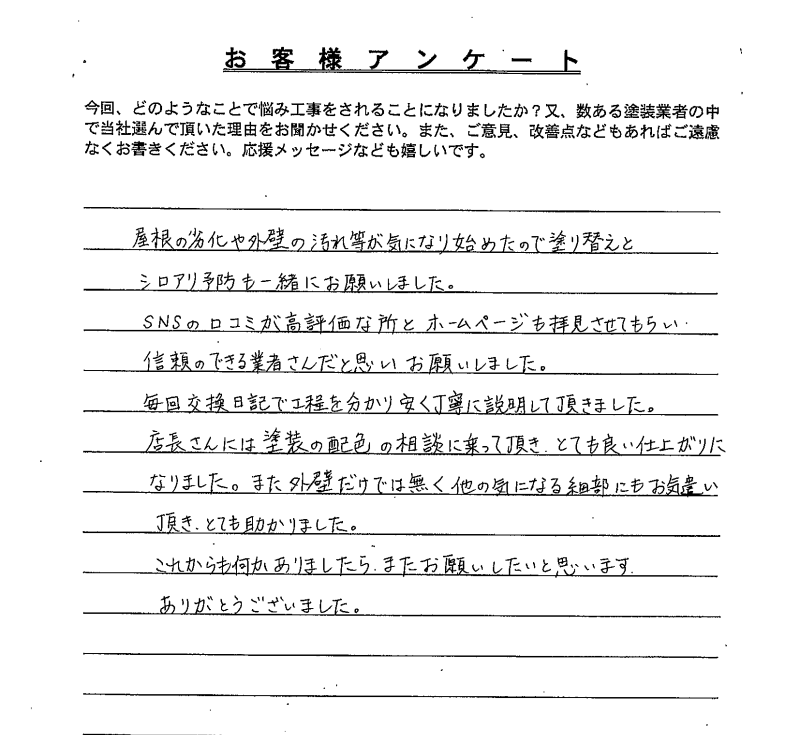 お客様アンケート
今回、どのようなことで悩み工事をされることになりましたか？又、数ある塗装業者の中
で当社選んで頂いた理由をお聞かせください。また、ご意見、改善点などもあればご遠慮
なくお書きください。応援メッセージなども嬉しいです。
屋根の劣化や外壁の汚れ等が気になり始めたので塗り替えと
シロアリ予防も一緒にお願いしました。
SNSの口コミが高評価な所とホームページも拝見させてもらい
信頼のできる業者さんだと思いお願いしました。
毎回交換日記で工程を分かり安く丁寧に説明して頂きました。
店長さんには塗装の配色の相談に乗って頂き、とても良い仕上がりに
なりました。また外壁だけでは無く他の気になる細部にもお気遣い
頂き、とても助かりました。
これからも何かありましたら、またお願いしたいと思います。
ありがとうございました。